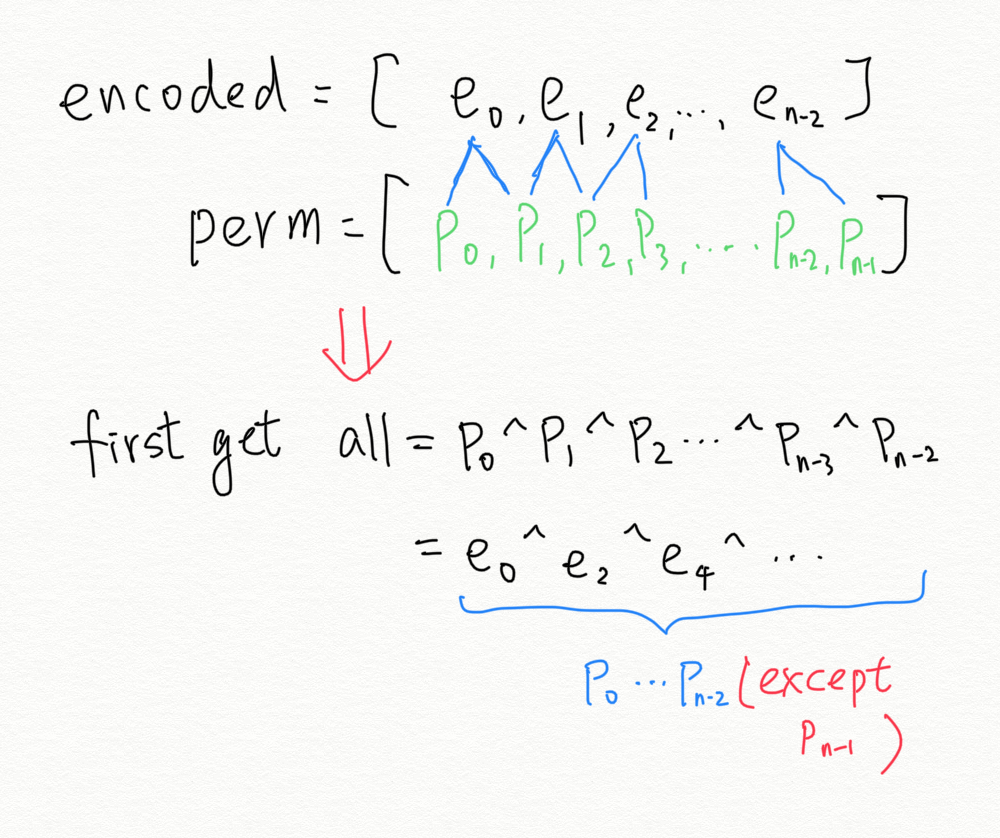 encoded = [ e₀, e₁, e₂, ..., eₙ₋₂ ]
perm = [ P₀, P₁, P₂, P₃, ..... Pₙ₋₂, Pₙ₋₁ ]
first get all = P₀ ^ P₁ ^ P₂ ... ^ Pₙ₋₃ ^ Pₙ₋₂
= e₀ ^ e₂ ^ e₄ ^ ...
P₀ ... Pₙ₋₂ (except
Pₙ₋₁ )